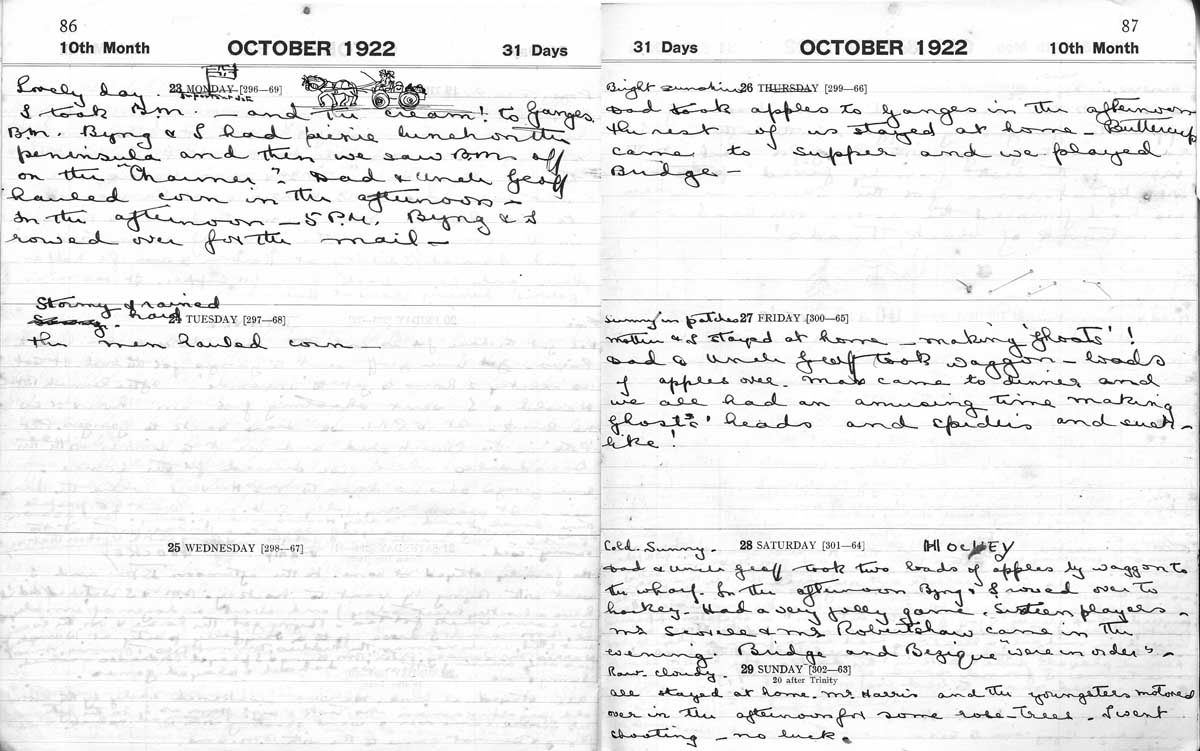 86
10th Month OCTOBER 1922 31 Days
Lovely day. 23 MONDAY [296—69]
I took B.M. — and the cream! to Ganges.
B.M. Byng & I had picnic lunch on the
peninsula and then we saw B.M. off
on the "Charmer". Dad & Uncle Geoff
hauled corn in the afternoon —
In the afternoon — 5 P.M. Byng & I
rowed over for the mail —
Stormy & rained
hard 24 TUESDAY [297—68]
the men hauled corn —
25 WEDNESDAY [298—67]
87
31 Days OCTOBER 1922 10th Month
Bright sunshine 26 THURSDAY [299—66]
Dad took apples to Ganges in the afternoon
the rest of us stayed at home — Buttercup
came to supper and we played
Bridge —
Sunny in patches 27 FRIDAY [300—65]
Mother & I stayed at home — making 'ghosts'!!
Dad & Uncle Geoff took waggon-loads
of apples over. Max came to dinner and
we all had an amusing time making
ghosts' heads and spiders and such-
like!
Cold. Sunny. 28 SATURDAY [301—64] HOCKEY
Dad & Uncle Geoff took two loads of apples by waggon to
the wharf. In the afternoon Byng & I rowed over to
hockey. Had a very jolly game. Sixteen players —
Mr Scovell & Mr Robertshaw came in the
evening. Bridge and Bezique "were in order" —
Raw. cloudy. 29 SUNDAY [302—63]
20 after Trinity
all stayed at home. Mr Harris and the youngsters motored
over in the afternoon for some rose-trees. I went
shooting — no luck.